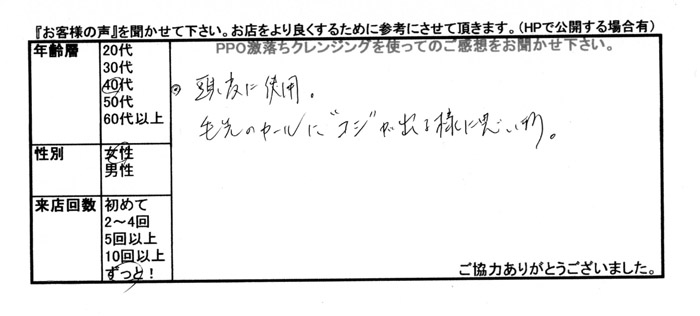 『お客様の声』を聞かせて下さい。お店をより良くするために参考にさせて頂きます。（HPで公開する場合有）
年齢層
20代
30代
40代
50代
60代以上
性別
女性
男性
来店回数
初めて
2～4回
5回以上
10回以上
ずっと！
PPO激落ちクレンジングを使ってのご感想をお聞かせ下さい。
頭皮に使用。
毛先のカールに"コシ"が出る様に思います。
ご協力ありがとうございました。